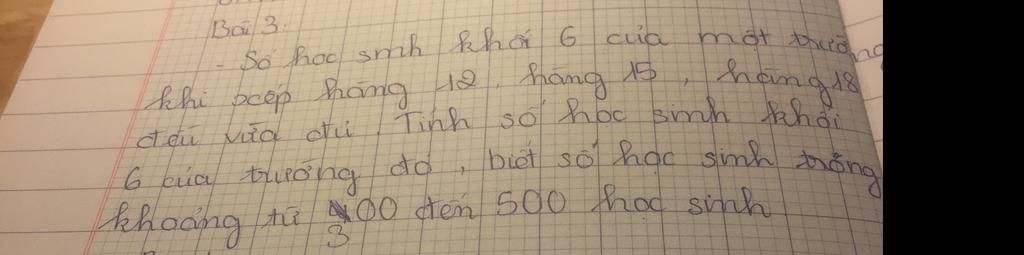 Bài 3:
- Số học sinh khối 6 của một trường
khi xếp hàng 12, hàng 15, hàng 18
đều vừa đủ. Tính số học sinh khối
6 của trường đó, biết số học sinh trong
khoảng từ 300 đến 500 học sinh